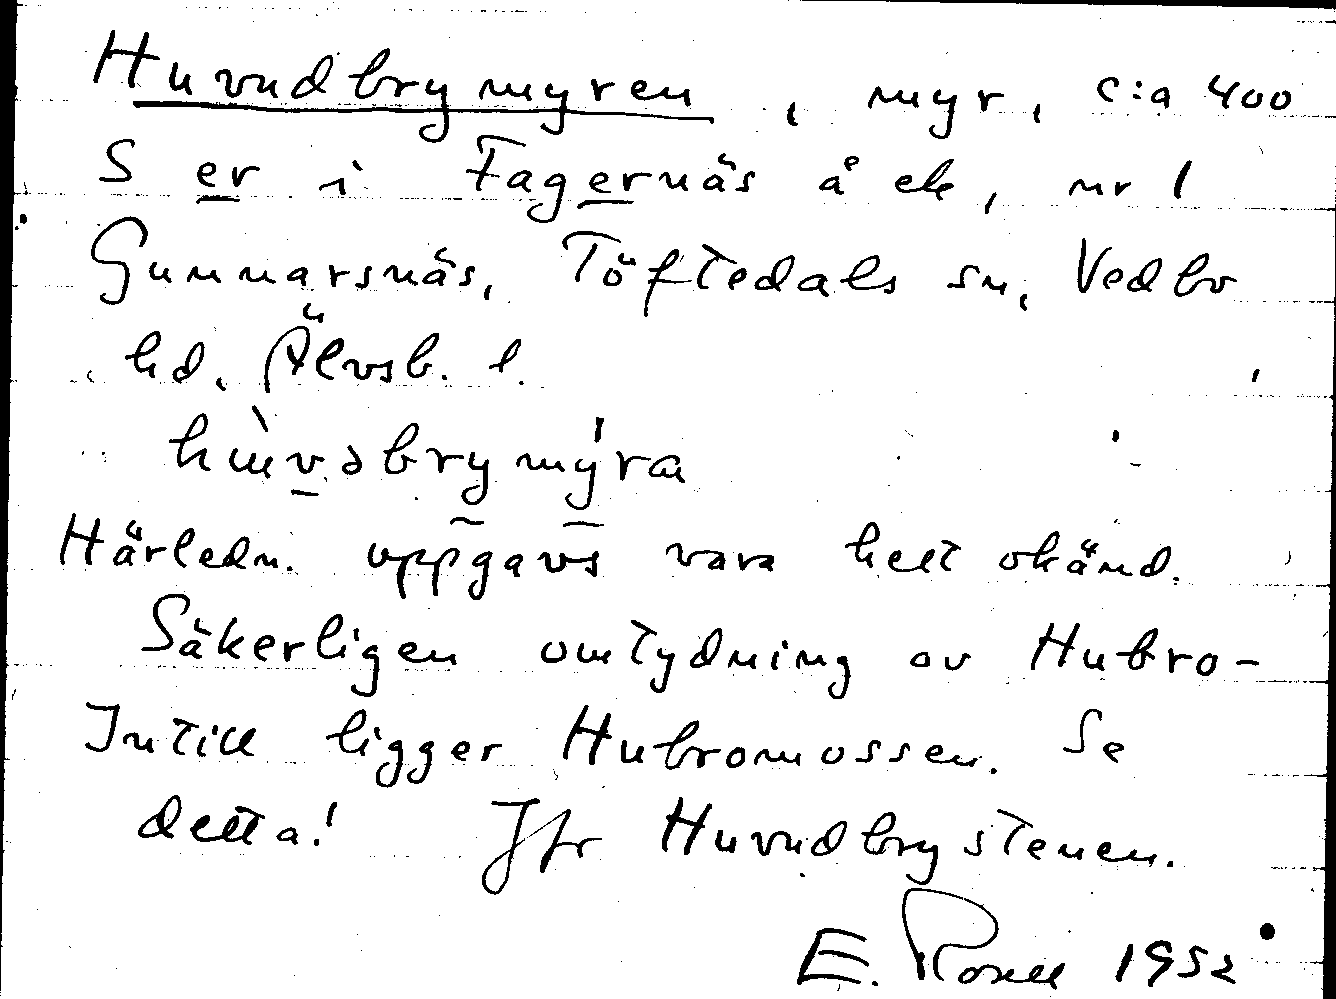 Huvudbrymyren, myr, c:a 400
S er i Fagernäs å ek, nr 1
Gunnarsnäs, Töftedals sn, Vedbo
hd. Älvsb. l.
Härledn. uppgavs vara helt okänd.
Säkerligen omtydning av Hubro-
Intill ligger Hubromossen. Se
detta! Jfr Huvudbrystenen.
E. Rosell 1952